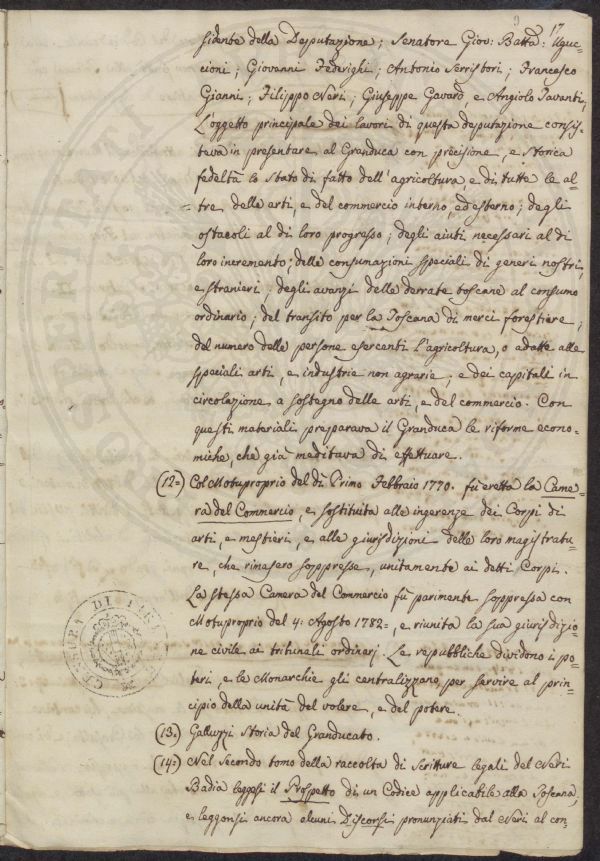 17
sidente della Deputazione; Senatore Giov: Batta: Uguc-
cioni; Giovanni Federighi; Antonio Serristori; Francesco
Gianni; Filippo Neri; Giuseppe Gavard, e Angiolo Tavanti,
L'oggetto principale dei lavori di questa deputazione consis-
teva in presentare al Granduca con precisione, e storica
fedeltà lo stato di fatto dell'agricoltura e di tutte le al-
tre delle arti, e del commercio interno, ed esterno; degli
ostacoli al di loro progresso; degli aiuti necessari al di
loro incremento; delle consumazioni speciali di generi nostri,
e stranieri; degli avanzi delle derrate toscane al consumo
ordinario; del transito per la Toscana di merci forestiere;
del numero delle persone esercenti l'agricoltura, o adatte alle
speciali arti, e industrie non agrarie; e dei capitali in
circolazione a sostegno delle arti, e del commercio. Con
questi materiali preparava il Granduca le riforme econo-
miche, che già meditava di effettuare.
(12=) Col Motuproprio del dì Primo Febbraio 1770. fù eretta la Came-
ra del Commercio, e sostituita alle ingerenze dei Corpi di
arti, e mestieri, e alle giurisdizioni delle loro magistratu-
re, che rimasero soppresse, unitamente ai detti Corpi.
La stessa Camera del Commercio fù parimente soppressa con
Motuproprio del 4: Agosto 1782=, e riunita la sua giurisdizio-
ne civile ai tribunali ordinarj. Le repubbliche dividono i po-
teri, e le Monarchie gli centralizzano, per servire al prin-
cipio della unità del volere, e del potere.
(13=) Galluzzi Storia del Granducato.
(14=) Nel Secondo tomo della raccolta di Scritture legali del Neri
Badia leggesi il Prospetto di un Codice applicabile alla Toscana,
e leggonsi ancora alcuni Discorsi pronunziati dal Neri al con-